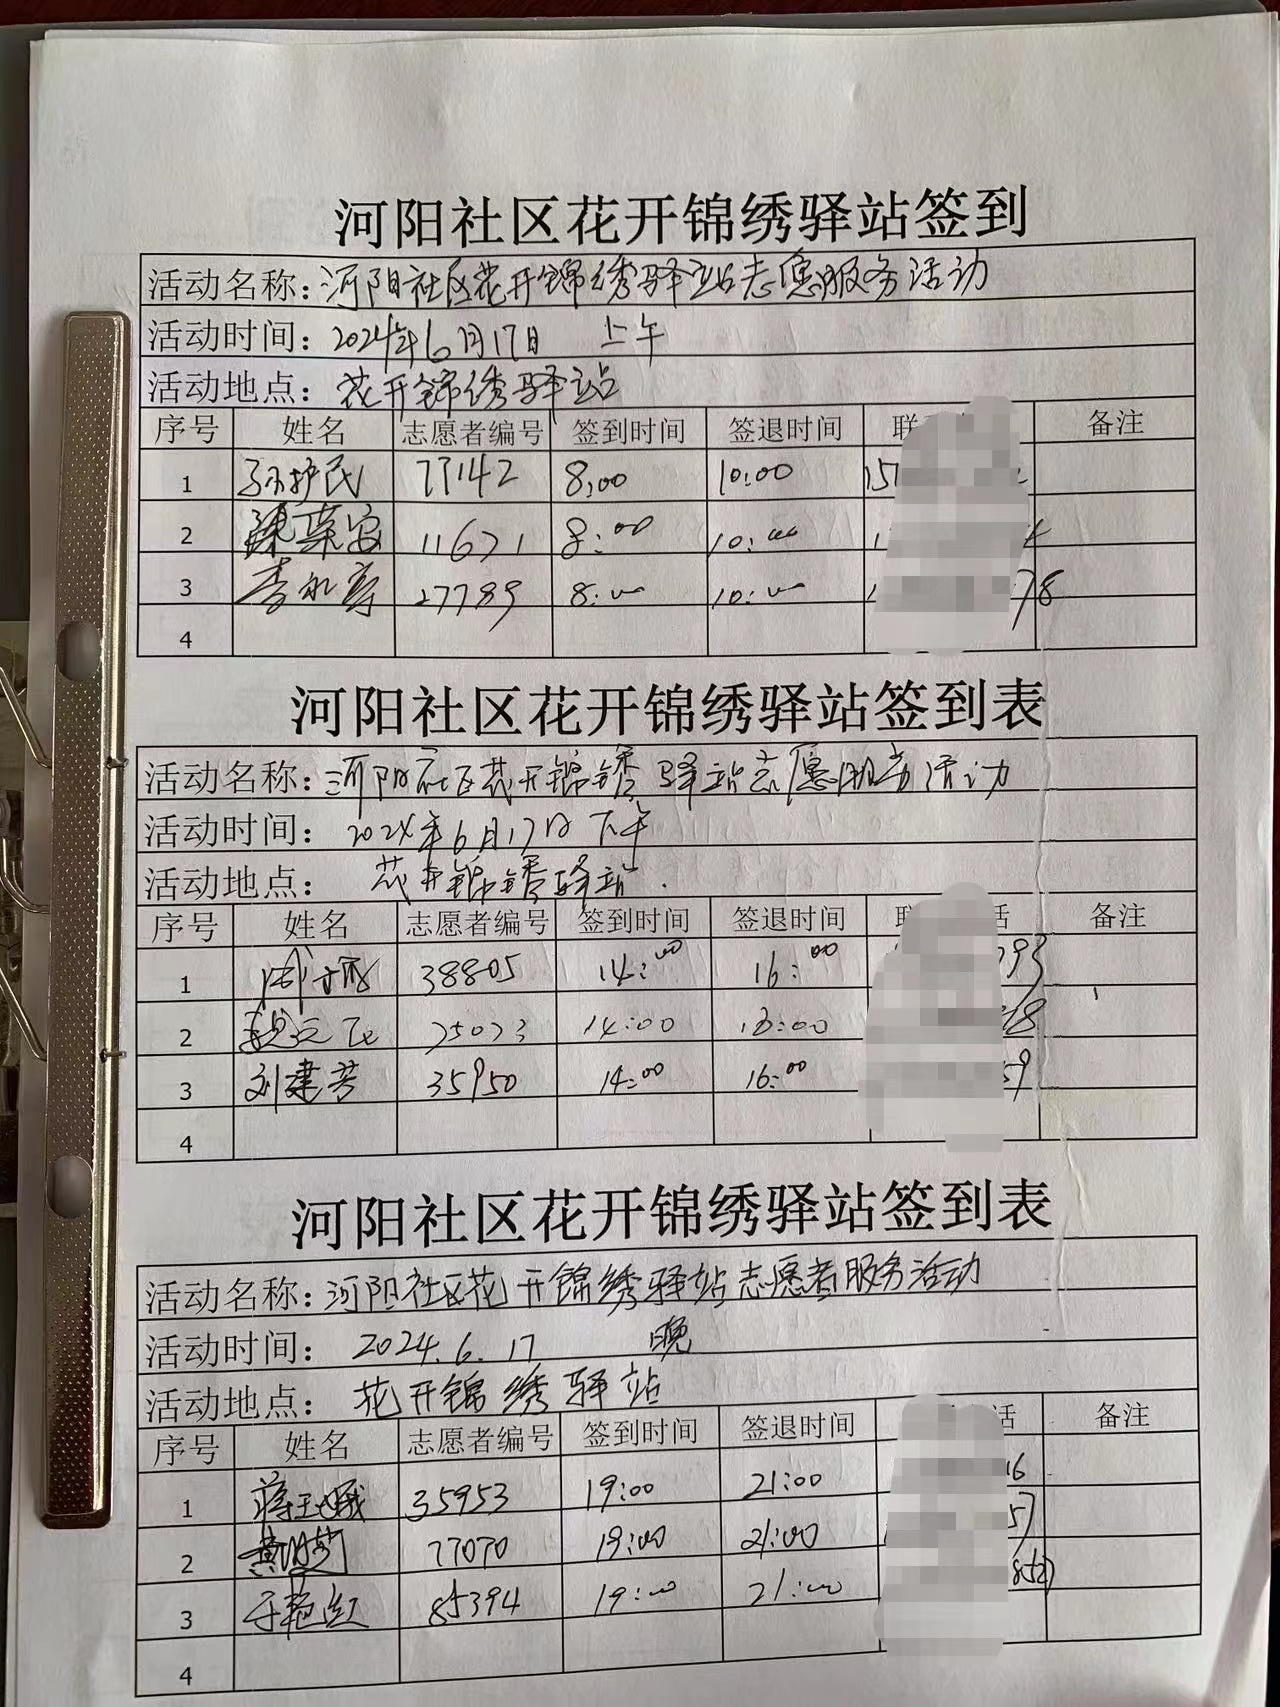 河阳社区花开锦绣驿站签到
活动名称：河阳社区花开锦绣驿站志愿服务活动
活动时间：2024年6月17日 上午
活动地点：花开锦绣驿站
序号 姓名 志愿者编号 签到时间 签退时间 联 备注
1 孙护民 77142 8:00 10:00 15
2 11671 8:00 10:00 1
3 27789 8:00 10:00 1 78
4
河阳社区花开锦绣驿站签到表
活动名称：河阳社区花开锦绣驿站志愿服务活动
活动时间：2024年6月17日 下午
活动地点：花开锦绣驿站.
序号 姓名 志愿者编号 签到时间 签退时间 联 话 备注
1 38805 14:00 16:00 93
2 14:00 16:00 8
3 刘建芳 35950 14:00 16:00 59
4
河阳社区花开锦绣驿站签到表
活动名称：河阳社区花开锦绣驿站志愿者服务活动
活动时间：2024.6.17 晚
活动地点：花开锦绣驿站
序号 姓名 志愿者编号 签到时间 签退时间 话 备注
1 蒋玉娥 35953 19:00 21:00 16
2 77070 19:00 21:00 57
3 于艳红 85394 19:00 21:00 852
4